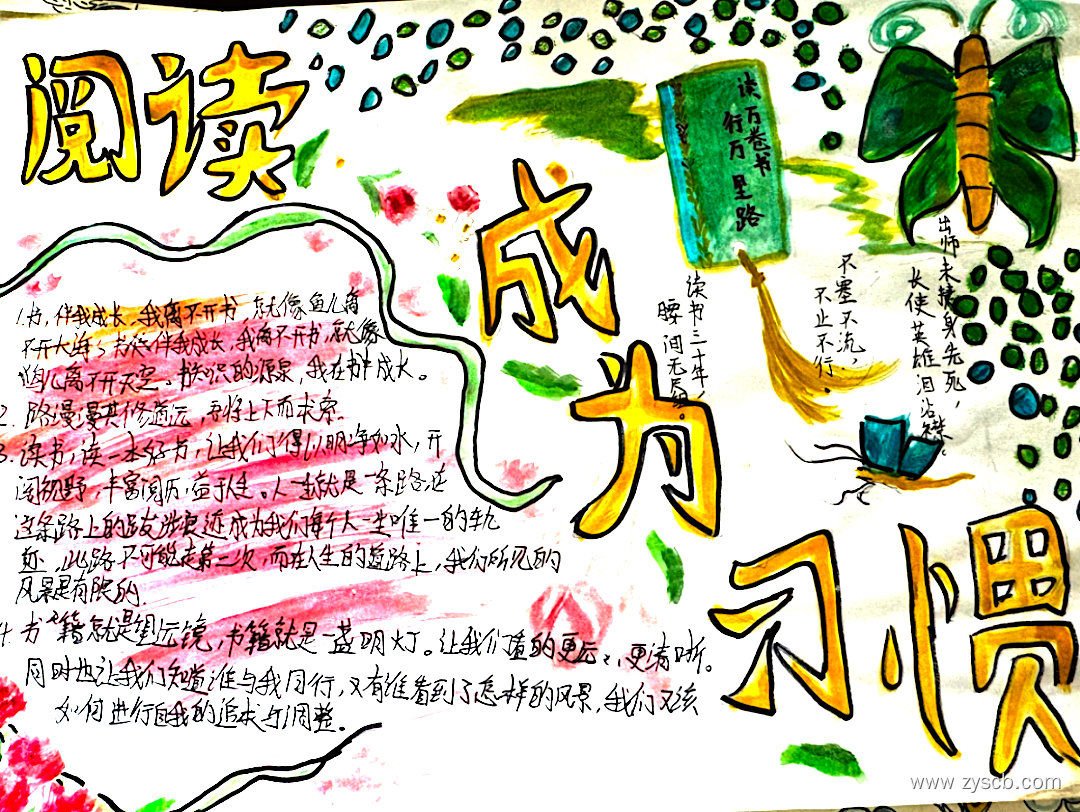 阅读
成
为
习惯
读万卷书
行万里路
出师未捷身先死，
长使英雄泪沾襟。
不塞不流，
不止不行。
读书三十年，
腰间无
1.书，伴我成长。我离不开书，就像鱼儿离
不开大海；书伴我成长，我离不开书，就像
鸟儿离不开天空。书知识的源泉，我在书中成长。
2. 路漫漫其修道远，吾将上下而求索。
3.读书，读一本好书，让我们得以明净如水，开
阔视野，丰富阅历，益于人生。人一生就是一条路，在
这条路上的跋涉痕迹成为我们每个人一生唯一的轨
迹，此路不可能走第二次，而在人生的道路上，我们所见的
风景是有限的.
4. 书籍就是望远镜，书籍就是一盏明灯。让我们的更远，更清晰。
同时也让我们知道谁与我同行，又有谁看到了怎样的风景，我们又该
如何进行自我的追求与调整。
www.zyscb.com